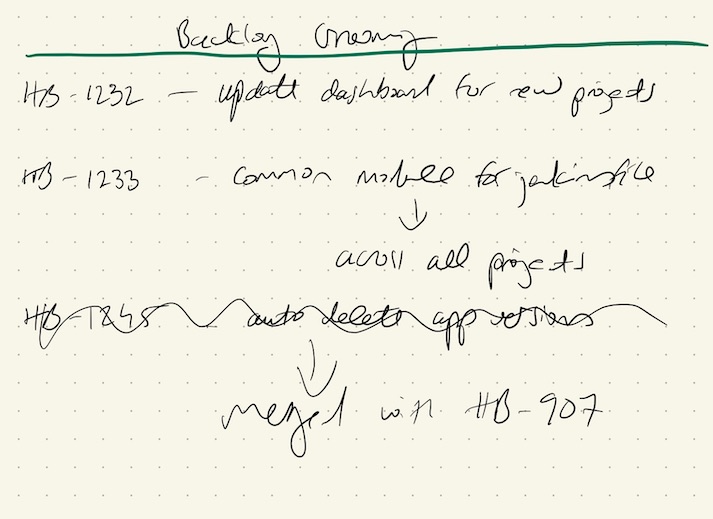 Backlog Grooming
HB-1232 - update dashboard for new projects
HB-1233 - common module for jenkinsfile
across all projects
HB-1245 - auto delete app versions
merged with HB-907